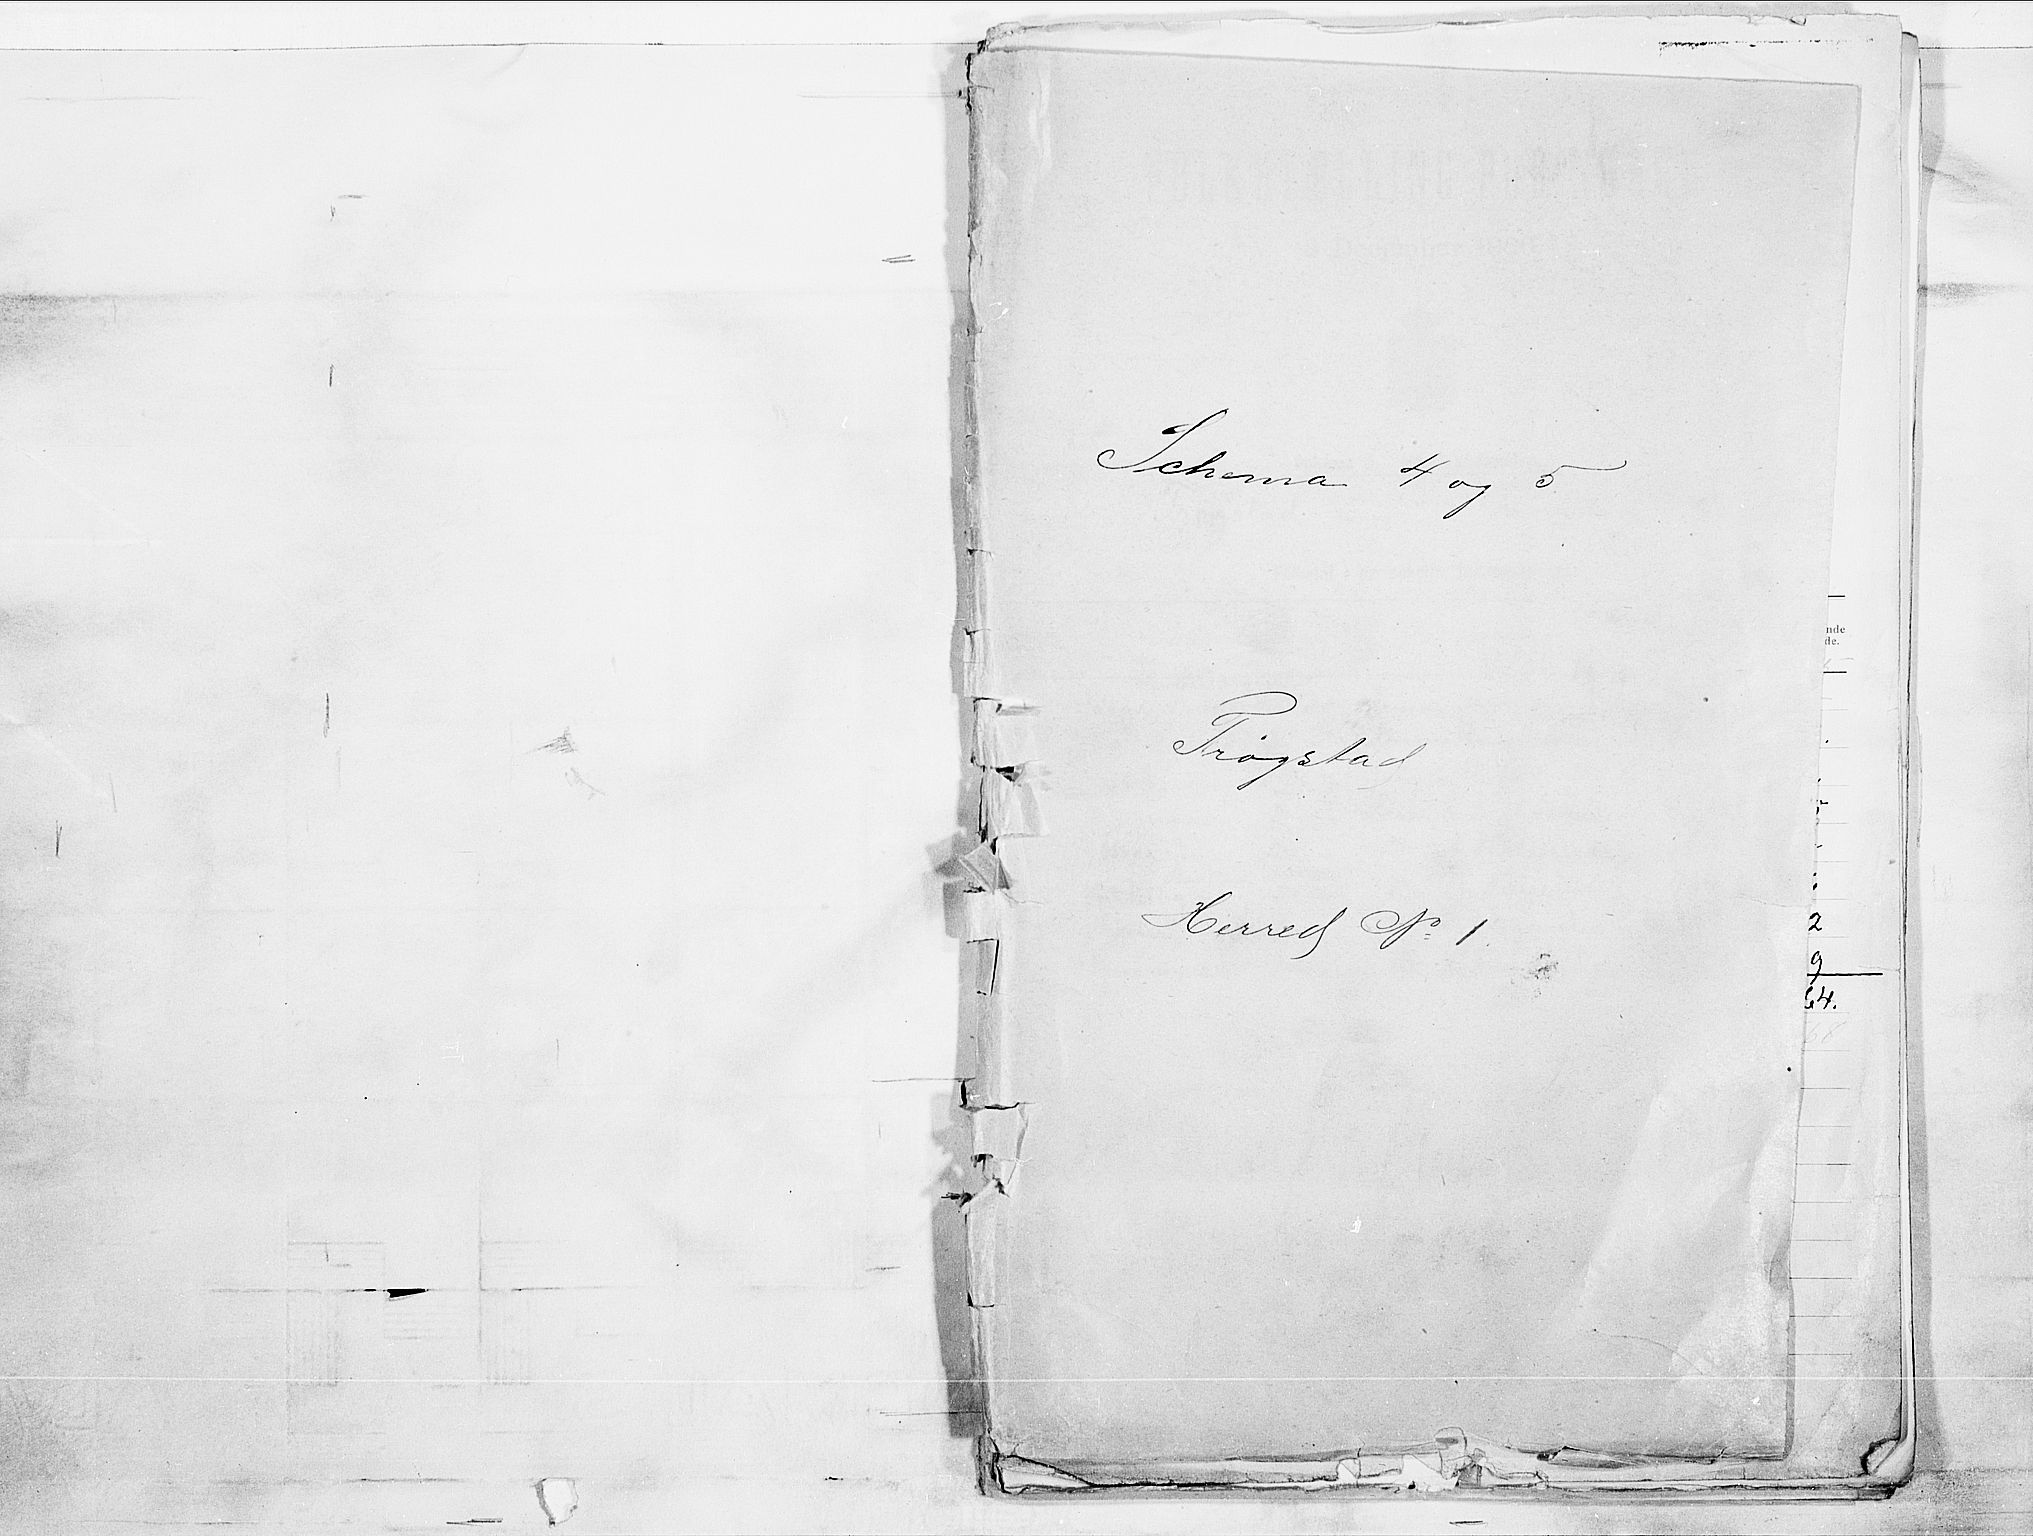 Schema 4 og 5
Trøgstad
Herred No 1.
nde
de.
2
9
64.
68